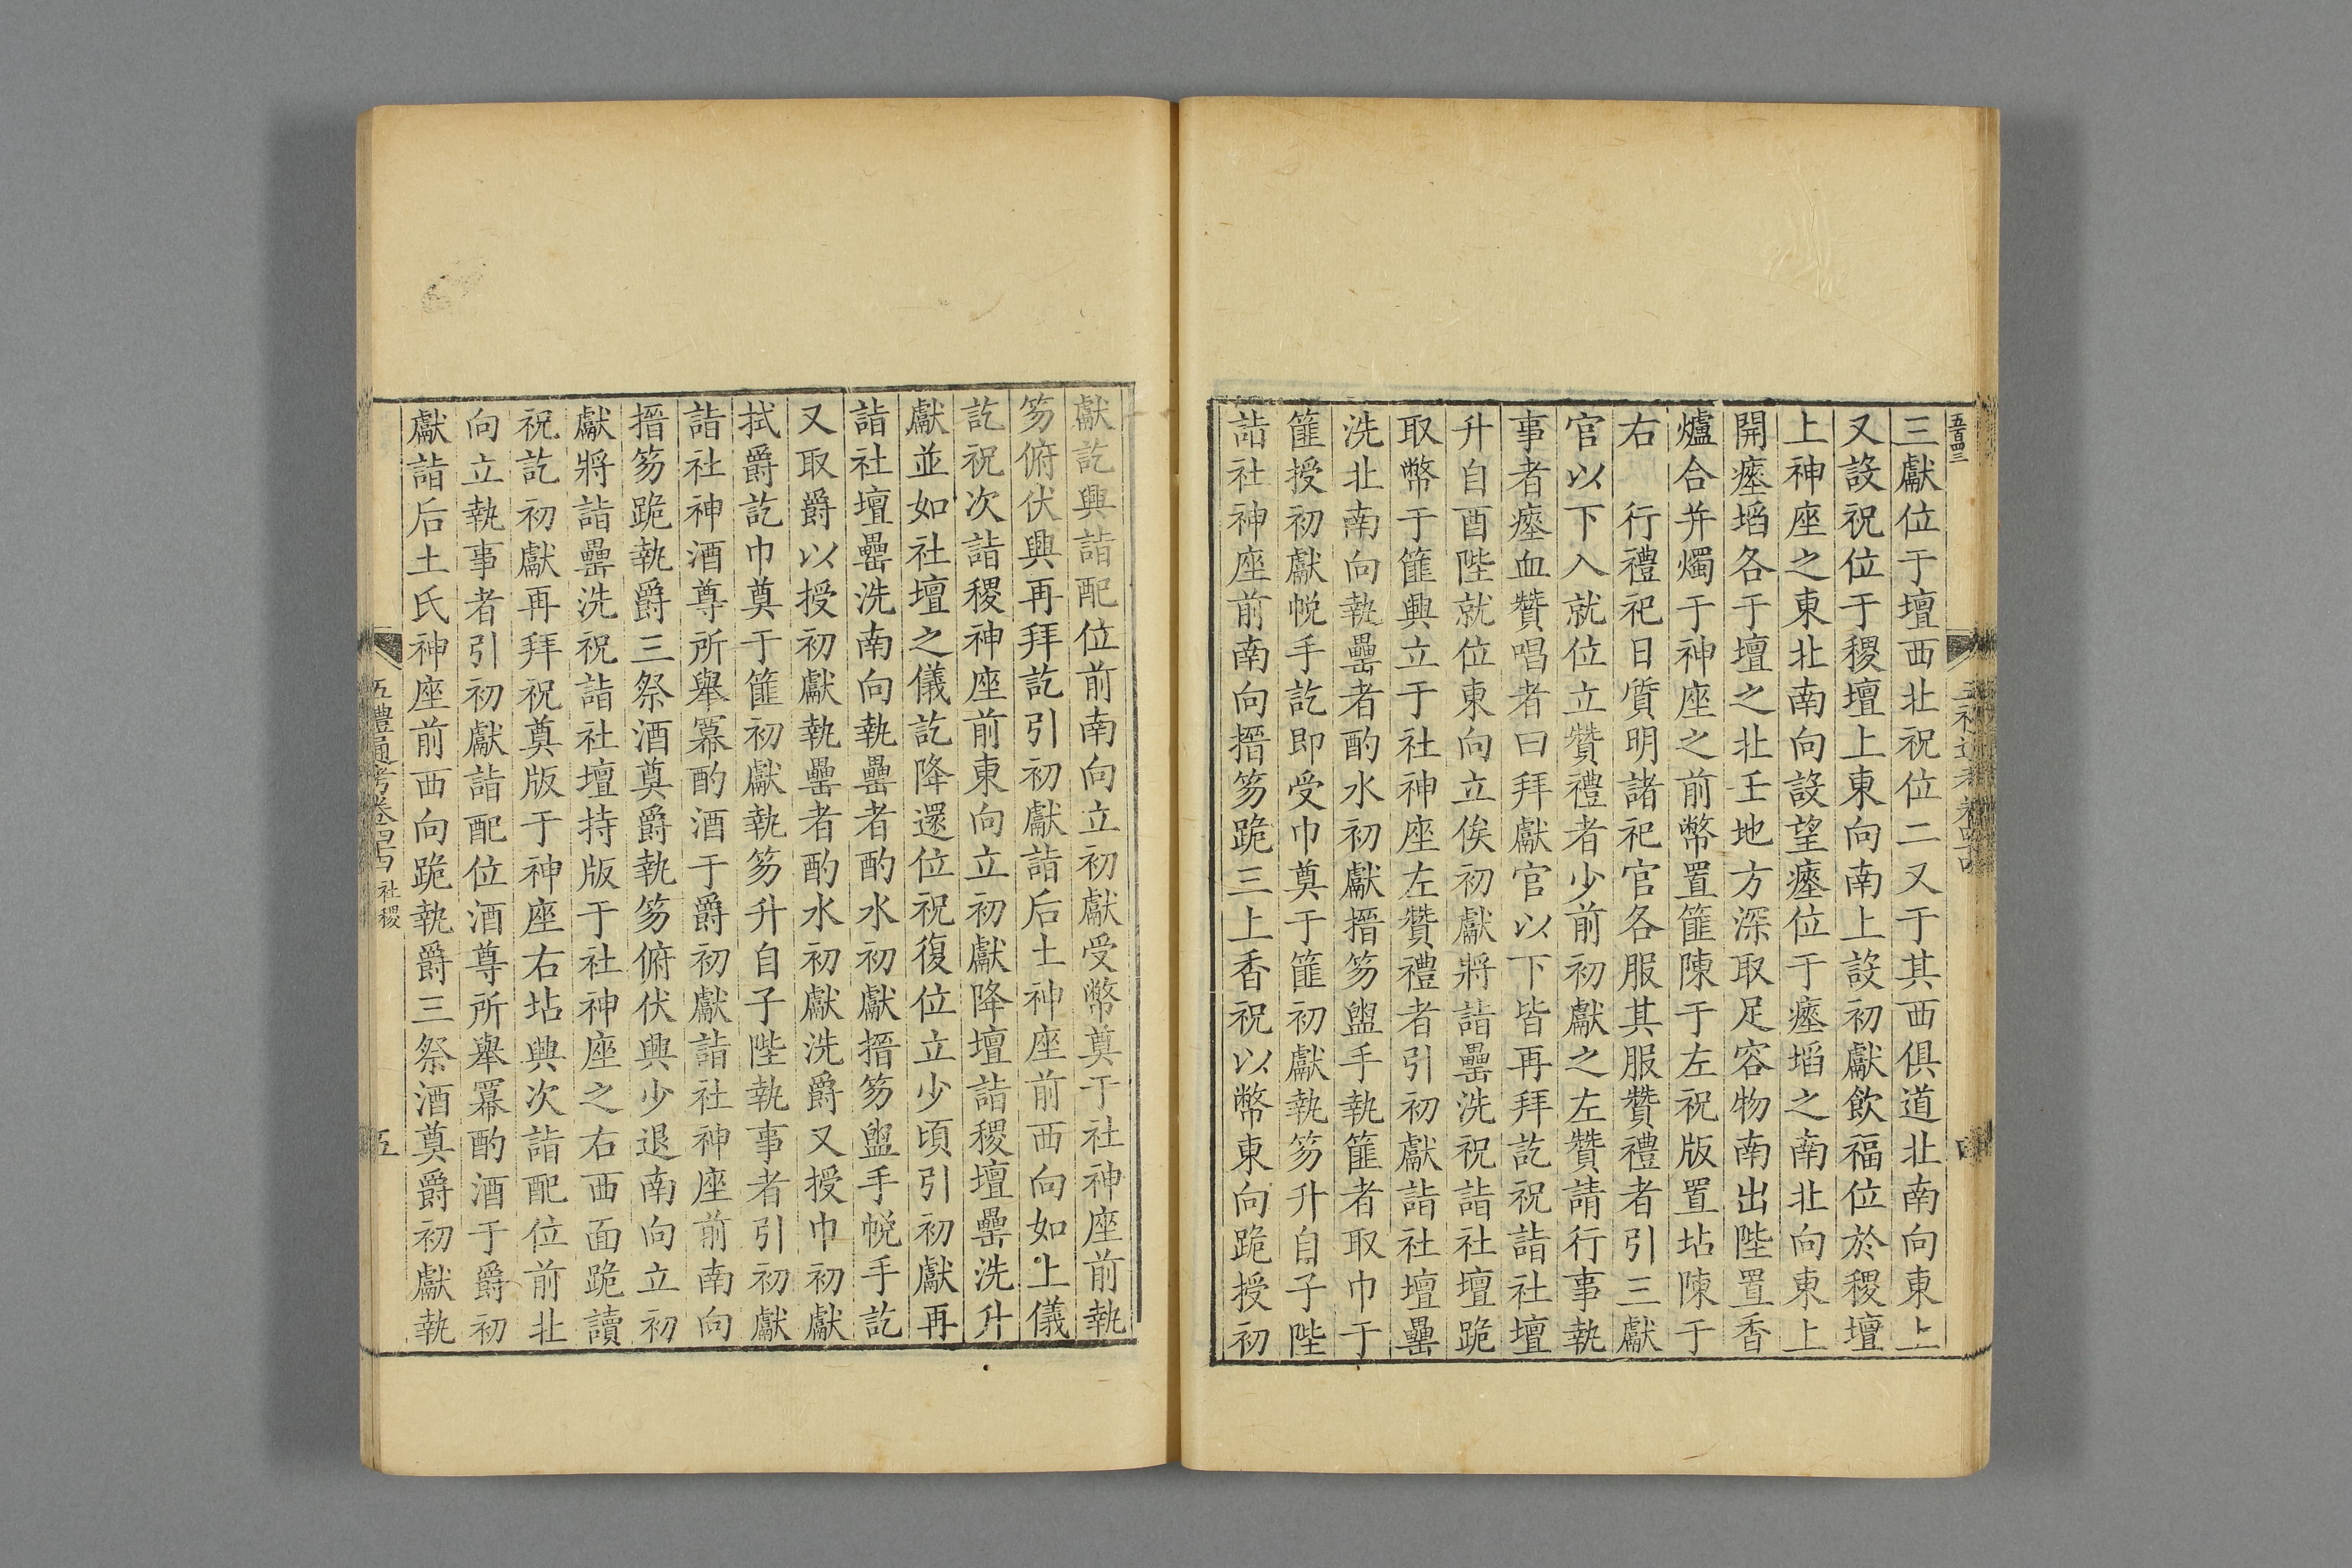 五百四三
三獻位于壇西北祝位二又于其西俱道北南向東上
又設祝位于稷壇上東向南上設初獻飲福位於稷壇
上神座之東北南向設望瘞位于瘞埳之南北向東上
開瘞埳各于壇之北壬地方深取足容物南出陛置香
爐合并燭于神座之前幣置篚陳于左祝版置坫陳于
右　行禮祀日質明諸祀官各服其服贊禮者引三獻
官以下入就位立贊禮者少前初獻之左贊請行事執
事者瘞血贊唱者曰拜獻官以下皆再拜訖祝詣社壇
升自酉陛就位東向立俟初獻將詣罍洗祝詣社壇跪
取幣于篚興立于社神座左贊禮者引初獻詣社壇罍
洗北南向執罍者酌水初獻搢笏盥手執篚者取巾于
篚授初獻帨手訖即受巾奠于篚初獻執笏升自子陛
詣社神座前南向搢笏跪三上香祝以幣東向跪授初
獻訖興詣配位前南向立初獻受幣奠于社神座前執
笏俯伏興再拜訖引初獻詣后土神座前西向如上儀
訖祝次詣稷神座前東向立初獻降壇詣稷壇罍洗升
獻並如社壇之儀訖降還位祝復位立少頃引初獻再
詣社壇罍洗南向執罍者酌水初獻搢笏盥手帨手訖
又取爵以授初獻執罍者酌水初獻洗爵又授巾初獻
拭爵訖巾奠于篚初獻執笏升自子陛執事者引初獻
詣社神酒尊所舉冪酌酒于爵初獻詣社神座前南向
搢笏跪執爵三祭酒奠爵執笏俯伏興少退南向立初
獻將詣罍洗祝詣社壇持版于社神座之右西面跪讀
祝訖初獻再拜祝奠版于神座右坫興次詣配位前北
向立執事者引初獻詣配位酒尊所舉冪酌酒于爵初
獻詣后土氏神座前西向跪執爵三祭酒奠爵初獻執
五禮通考卷四四 社稷 五